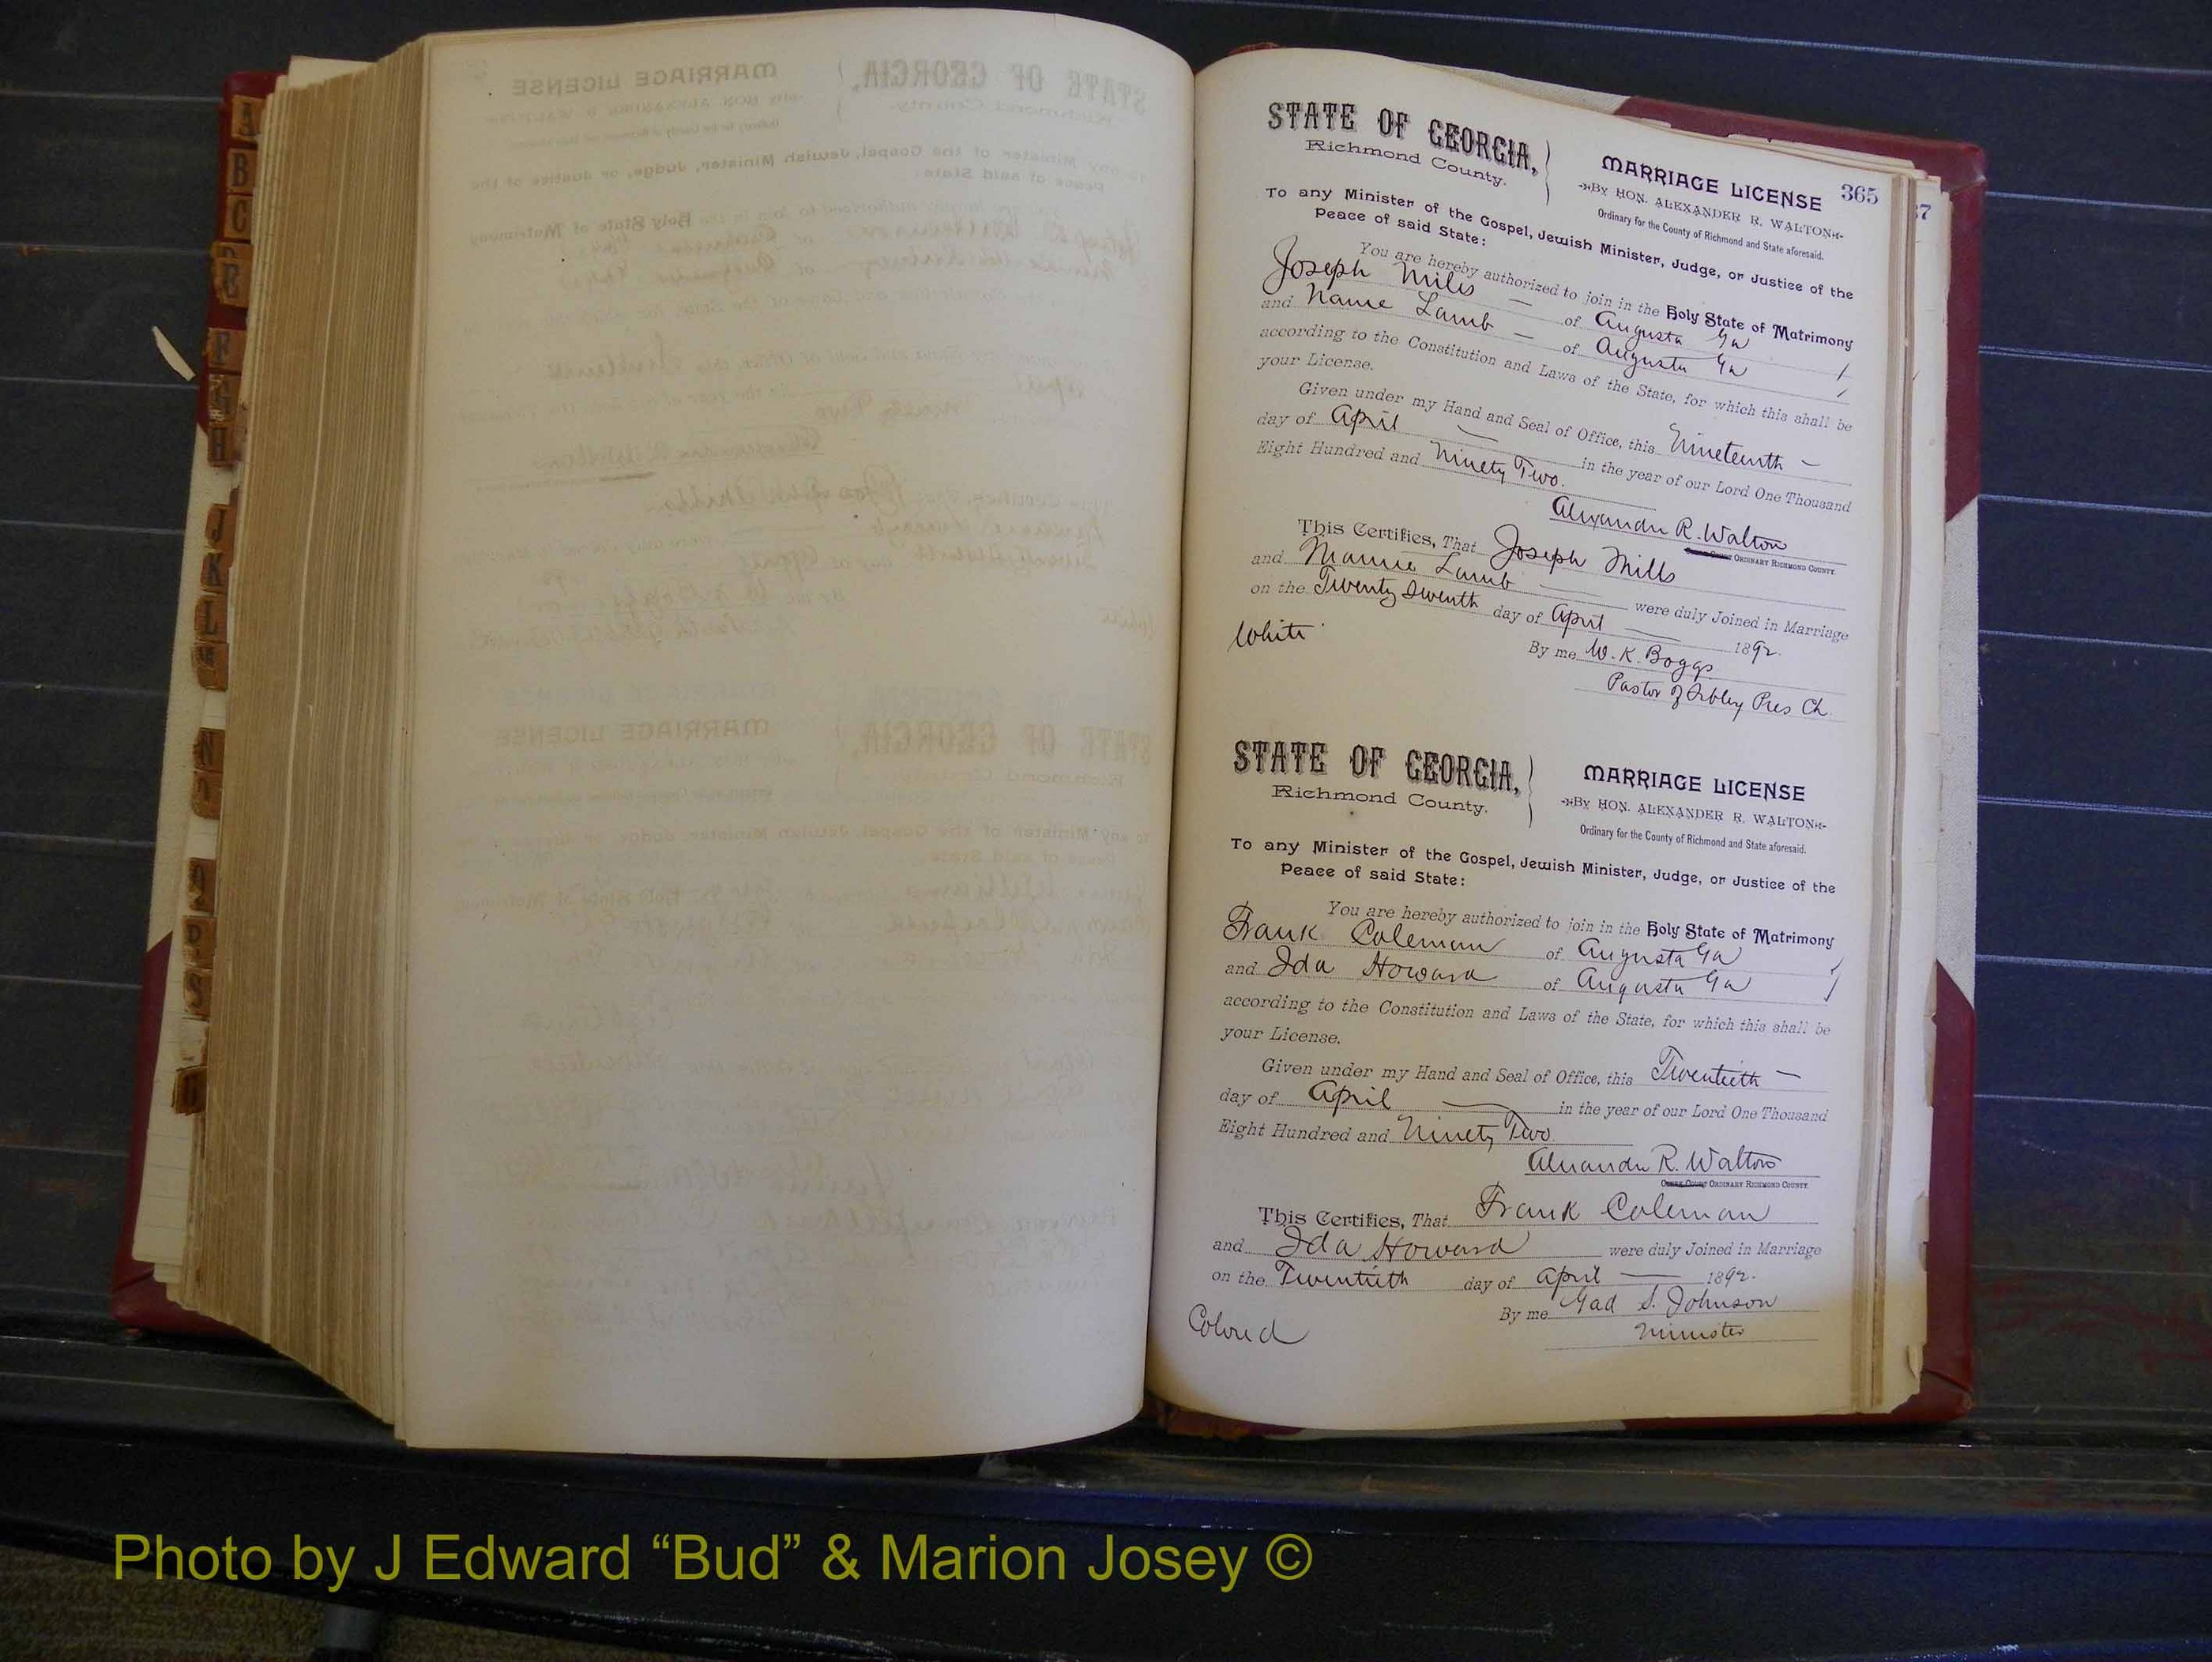 A
B
C
F
G
H
J
K
L
M
N
S
365
STATE OF GEORGIA,
Richmond County.
MARRIAGE LICENSE
By HON. ALEXANDER R. WALTON
Ordinary for the County of Richmond and State aforesaid.
To any Minister of the Gospel, Jewish Minister, Judge, or Justice of the
Peace of said State:
You are hereby authorized to join in the Holy State of Matrimony
Joseph Mills of Augusta Ga
and Mamie Lamb of Augusta Ga
according to the Constitution and Laws of the State, for which this shall be
your License.
Given under my Hand and Seal of Office, this Nineteenth
day of April in the year of our Lord One Thousand
Eight Hundred and Ninety Two.
Alexander R. Walton
ORDINARY RICHMOND COUNTY.
This Certifies, That Joseph Mills
and Mamie Lamb were duly Joined in Marriage
on the Twenty Seventh day of April 1892.
White
By me W. K. Boggs
Pastor of Sibley Pres Ch.
STATE OF GEORGIA,
Richmond County.
MARRIAGE LICENSE
By HON. ALEXANDER R. WALTON
Ordinary for the County of Richmond and State aforesaid.
To any Minister of the Gospel, Jewish Minister, Judge, or Justice of the
Peace of said State:
You are hereby authorized to join in the Holy State of Matrimony
Frank Coleman of Augusta Ga
and Ida Howard of Augusta Ga
according to the Constitution and Laws of the State, for which this shall be
your License.
Given under my Hand and Seal of Office, this Twentieth
day of April in the year of our Lord One Thousand
Eight Hundred and Ninety Two
Alexander R. Walton
ORDINARY RICHMOND COUNTY.
This Certifies, That Frank Coleman
and Ida Howard were duly Joined in Marriage
on the Twentieth day of April 1892.
By me Gad S. Johnson
Colored
Minister
Photo by J Edward “Bud” & Marion Josey ©